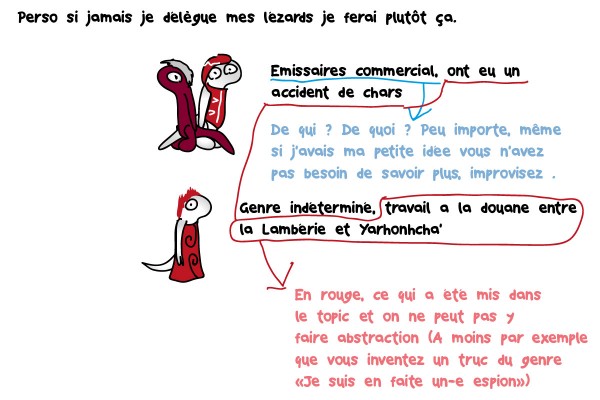 Perso si jamais je délègue mes lézards je ferai plutôt ça.
Emissaires commercial, ont eu un
accident de chars
De qui ? De quoi ? Peu importe, même
si j'avais ma petite idée vous n'avez
pas besoin de savoir plus, improvisez .
Genre indeterminé, travail a la douane entre
la Lambérie et Yarhonhcha'
En rouge, ce qui a été mis dans
le topic et on ne peut pas y
faire abstraction (A moins par exemple
que vous inventez un truc du genre
«Je suis en faite un-e espion»)